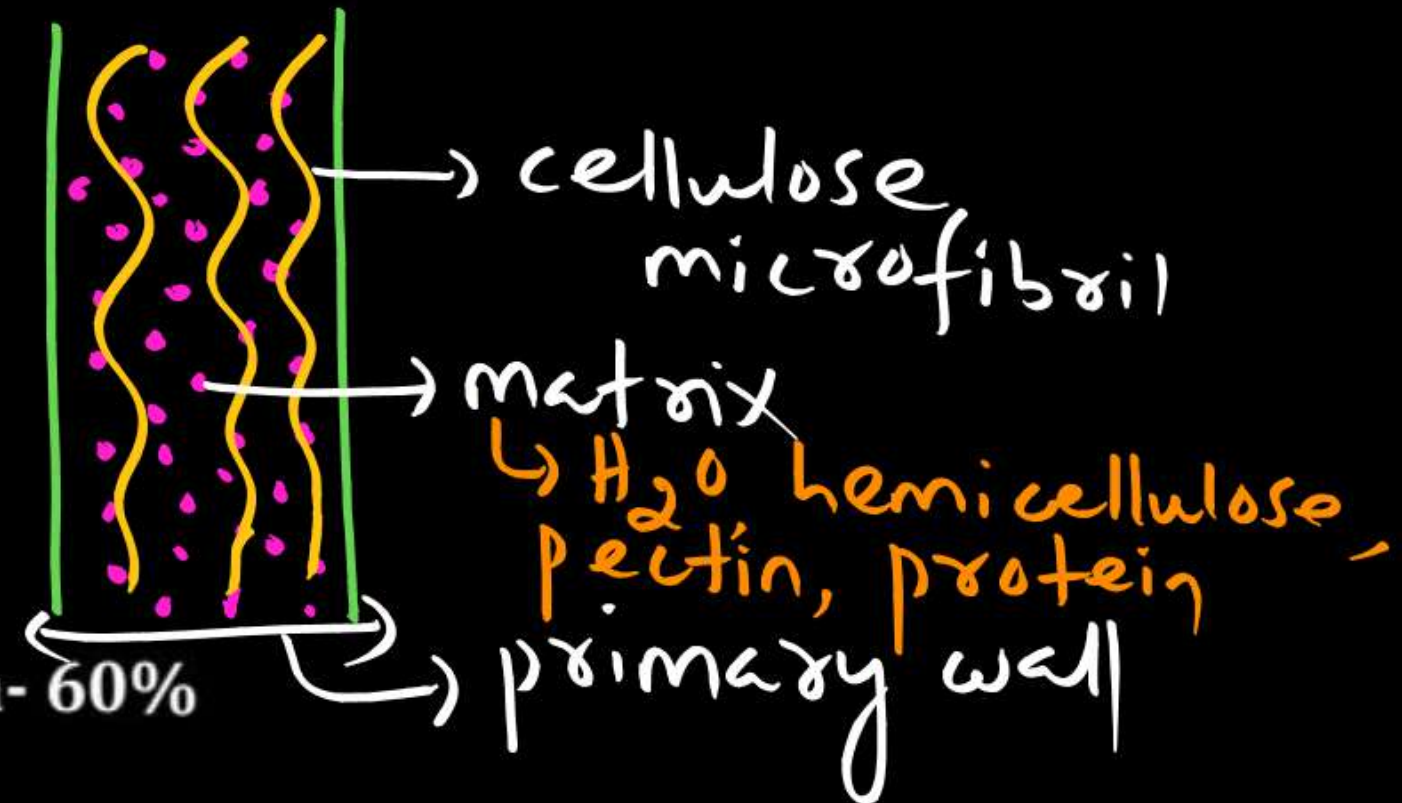 cellulose
microfibril
matrix
↳ H₂O hemicellulose,
pectin, protein
- 60%
primary wall